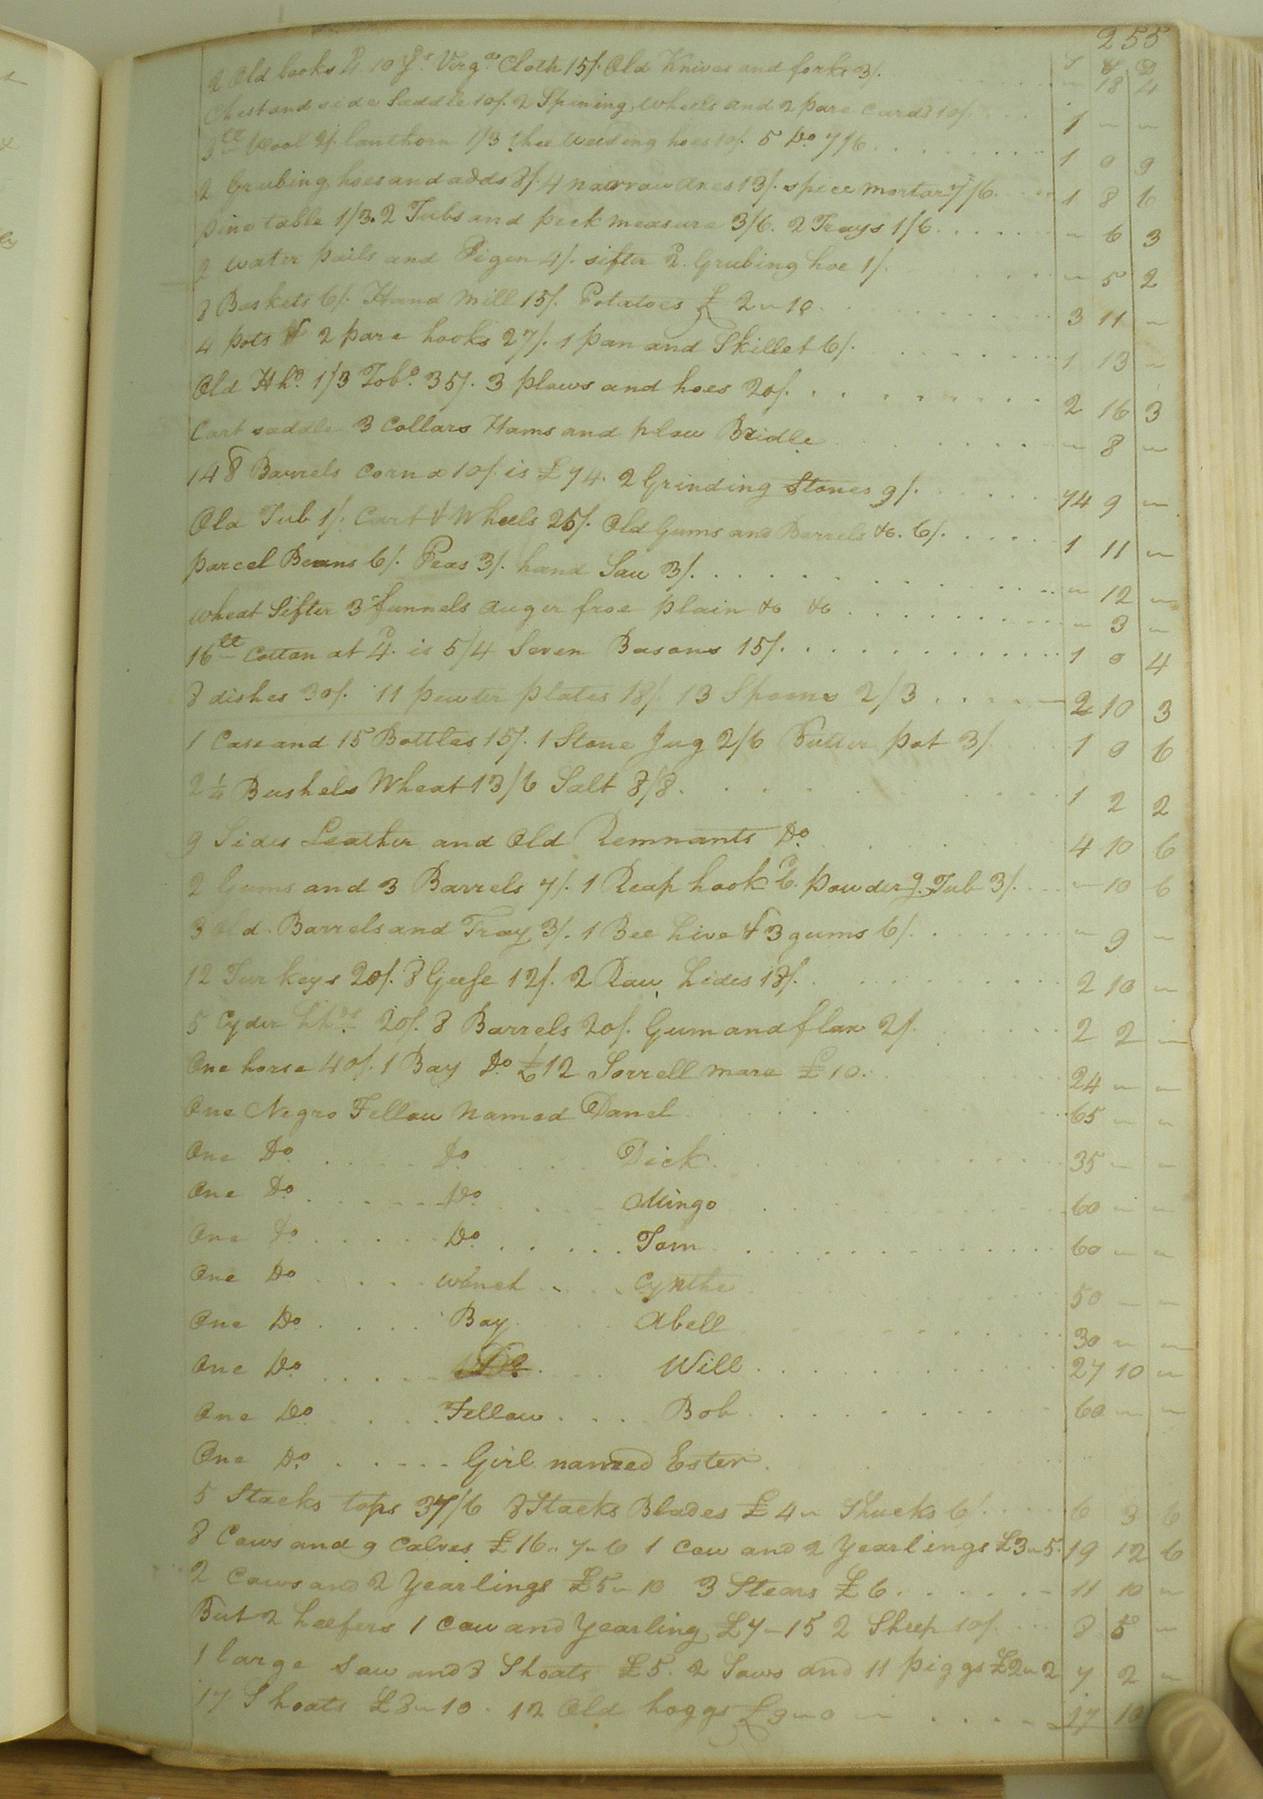 255
2 Old books 10 yds Virga Cloth 15/. Old Knives and forks 3/. - 18 4
Chest and side Saddle 10/. 2 Spining Wheels and 2 pare Cards 10/. 1 - -
3 lt Wool 2/. lanthorn 1/3 thee Weeding hoes 10/. 5 Do 7/6 1 0 9
2 Grubing hoes and adds 8/. 4 narrow axes 13/. spice mortar 7/6. 1 8 6
pine table 1/3. 2 Tubs and peck measure 3/6. 2 Trays 1/6 - 6 3
2 water pails and Pigen 4/. sifter 2d. Grubing hoe 1/. - 5 2
8 Baskets 6/. Hand Mill 15/. Potatoes £ 2 - 10 3 11 -
4 pots & 2 pare hooks 27/. 1 pan and Skillet 6/. 1 13 -
Old Hhd. 1/3 Tobo. 35/. 3 plows and hoes 20/. 2 16 3
Cart saddle 3 Collars Hams and plow Bridle - 8 -
148 Barrels Corn a 10/. is £74. 2 Grinding Stones 9/. 74 9 -
Old Tub 1/. Cart & Wheels 25/. Old Gums and Barrels &c. 6/. 1 11 -
parcel Beans 6/. Peas 3/. hand Saw 3/. - 12 -
Wheat Sifter 3 funnels auger froe plain &c &c - 3 -
16 lt Cotton at 4d. is 5/4 Seven Basons 15/. 1 0 4
8 dishes 30/. 11 pewter plates 18/. 13 Spoons 2/3 2 10 3
1 Case and 15 Bottles 15/. 1 Stone Jug 2/6 Butter pot 3/ 1 0 6
2 1/4 Bushels Wheat 13/6 Salt 8/8. 1 2 2
9 Sides Leather and Old Remnants Do. 4 10 6
2 Gums and 3 Barrels 7/. 1 Reap hook 6d. powderg. Tub 3/. - 10 6
3 Old Barrels and Tray 3/. 1 Bee hive & 3 gums 6/. - 9 -
12 Turkeys 20/. 8 Geese 12/. 2 Raw hides 18/. 2 10 -
5 Cyder hhds 20/. 8 Barrels 20/. Gum and flax 2/. 2 2 -
One horse 40/. 1 Bay Do £12 Sorrell mare £10. 24 - -
One Negro Fellow Named Danel 65 - -
One Do. Do Dick. 35 - -
One Do. Do Mingo 60 - -
One Do Do. Tom 60 - -
One Do Wench Cynthe 50 - -
One Do Boy Abell 30 - -
One Do. Do. Will 27 10 -
One Do Fellow Bob 60 - -
One Do. Girl named Ester.
5 Stacks tops 37/6 8 Stacks Blades £4 - Shucks 6/. 6 3 6
8 Cows and 9 Calves £16 - 7 - 6 1 Cow and 2 Yearlings £3 - 5. 19 12 6
2 Cows and 2 Yearlings £5 - 10 3 Stears £6 11 10 -
But 2 heefers 1 Cow and Yearling £7 - 15 2 Sheep 10/. 8 5 -
1 large Sow and 8 Shoats £5. 2 Sows and 11 piggs £2 - 2 7 2 -
17 Shoats £8 - 10. 12 Old hoggs £9 - 0 - 17 10